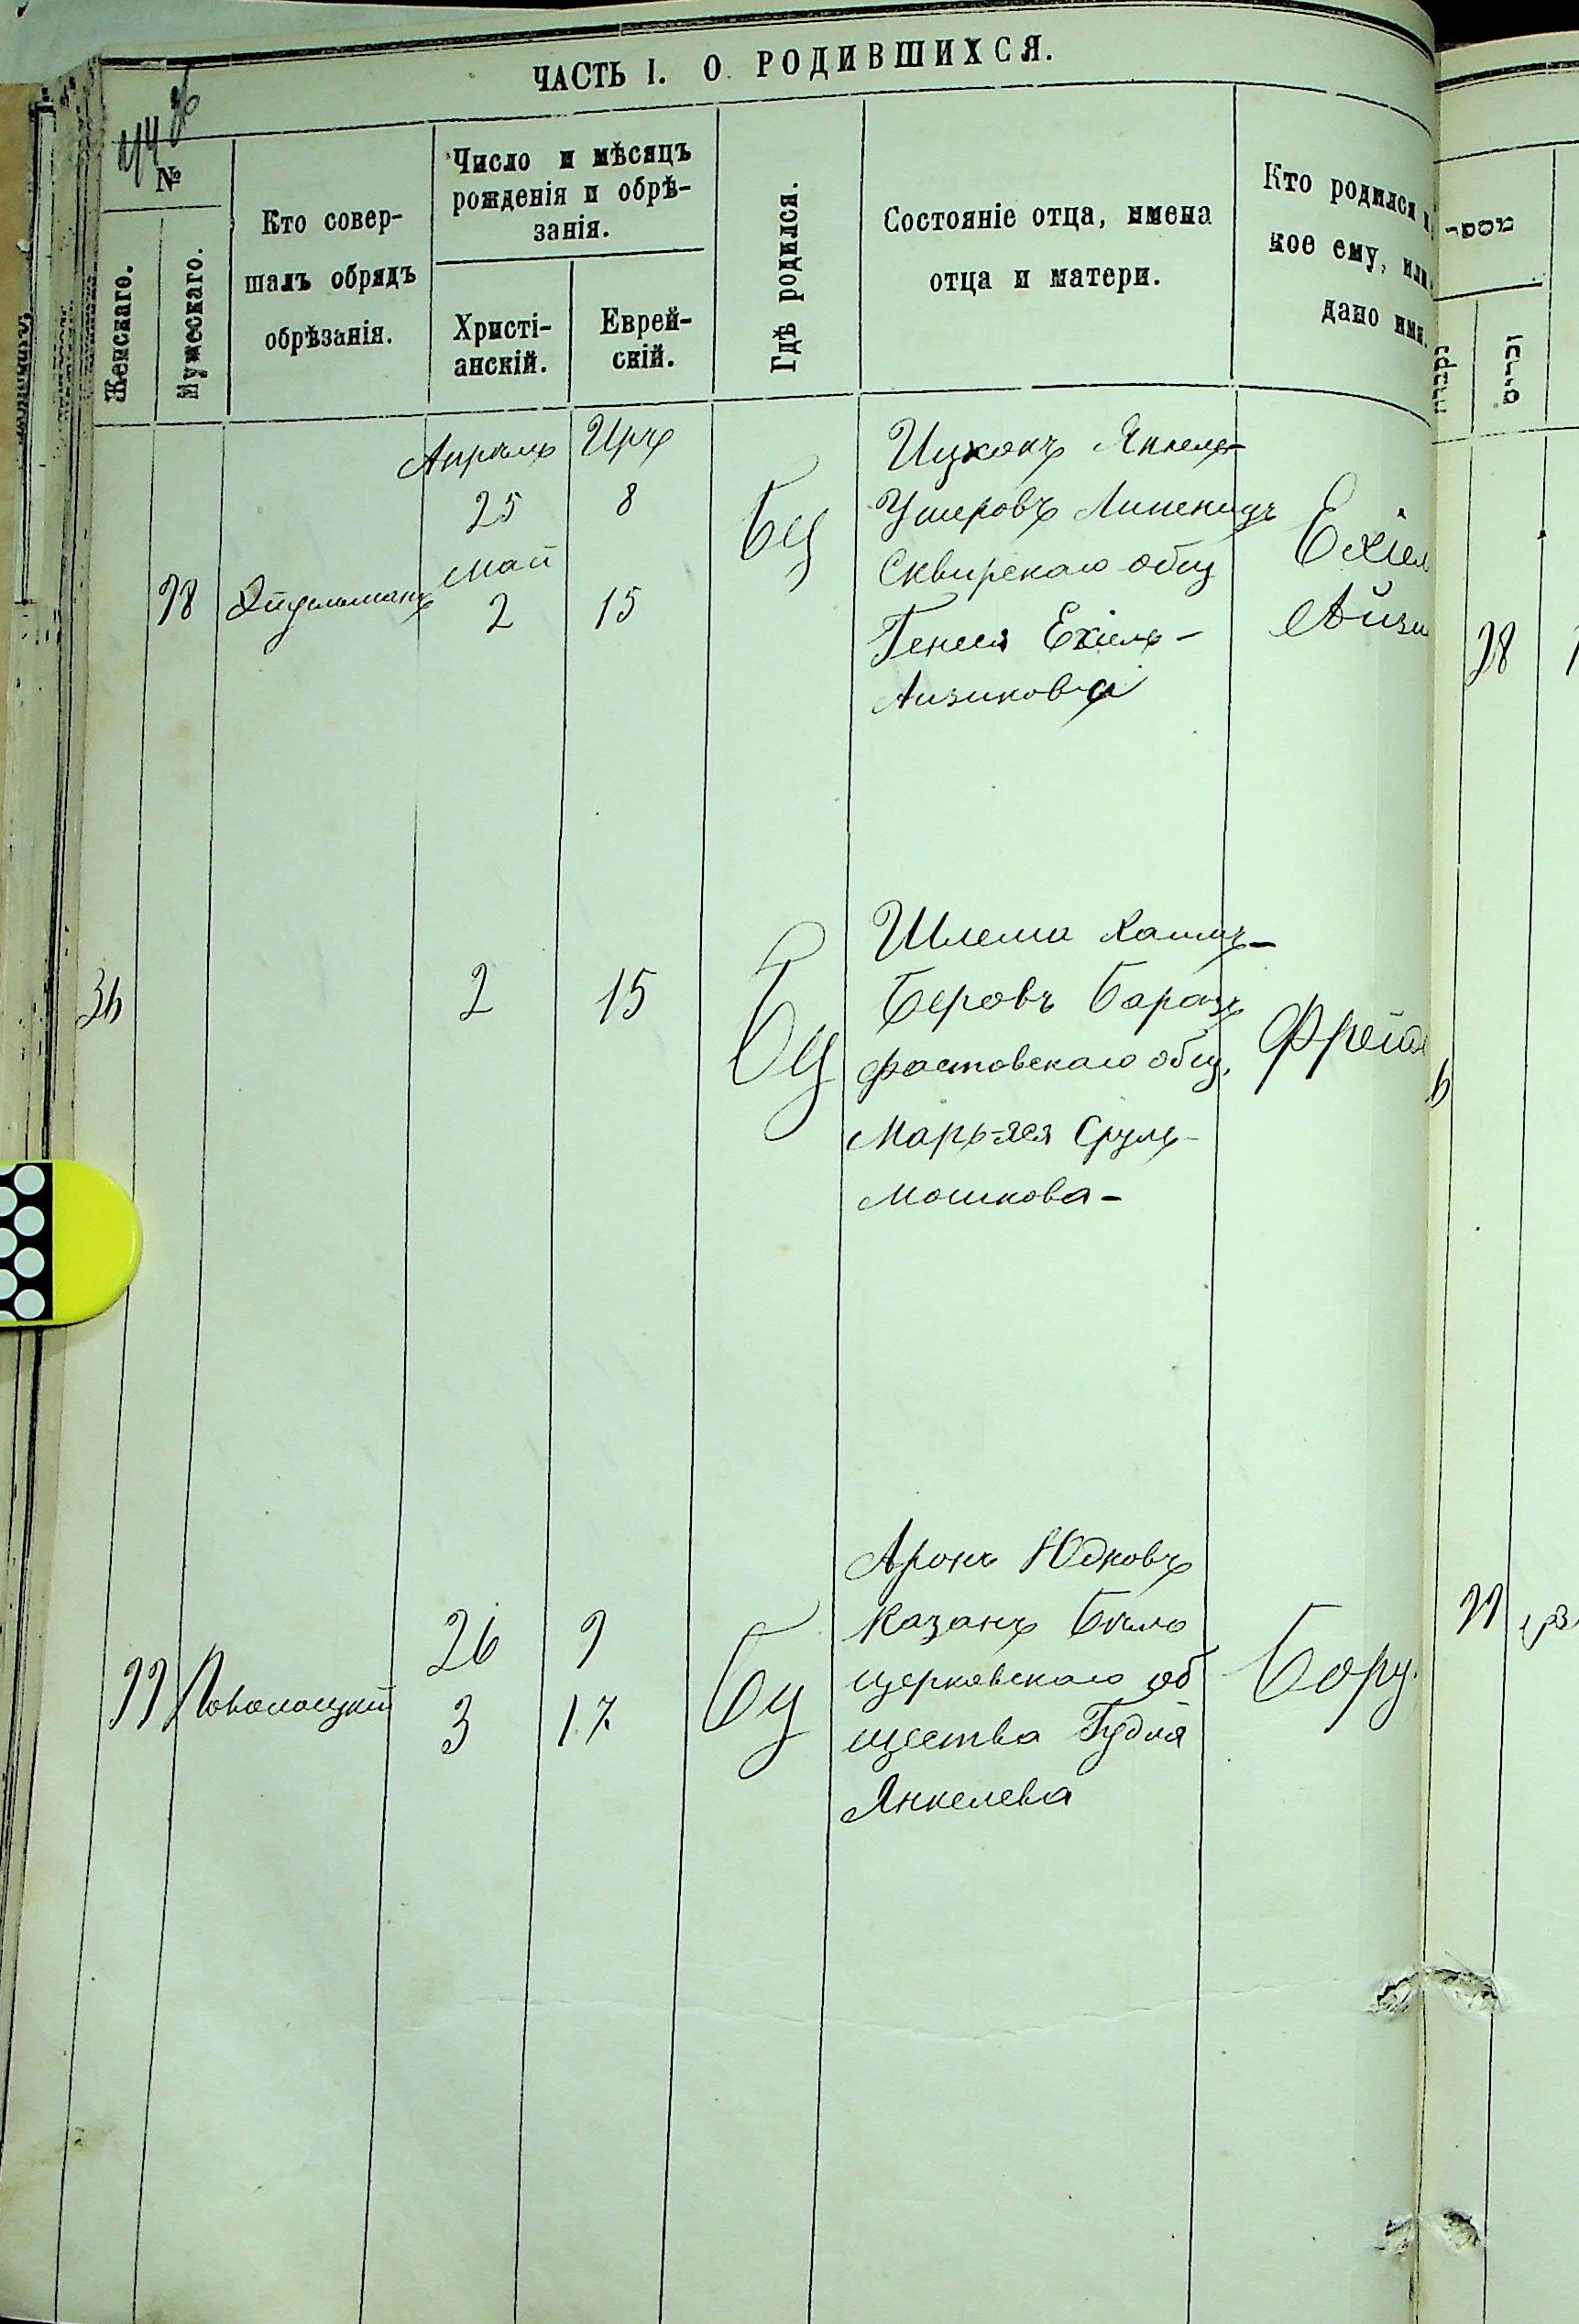 ЧАСТЬ I. О РОДИВШИХСЯ.
№
Женскаго.
Мужескаго.
Кто совер-
шалъ обрядъ
обрѣзанія.
Число и мѣсяцъ
рожденія и обрѣ-
занія.
Христі-
анскій.
Еврей-
скій.
Гдѣ родился.
Состояніе отца, имена
отца и матери.
Кто родился и
кое ему, или
дано имя.
Апрѣль Иръ
25 8
Май
98 Эйдельманъ 2 15
БЦ
Ицхокъ Янкель-
Ушеровъ Липенецъ
Сквирскаго общ
Геня Ехіель-
Аизикова
Ехіел
Айзи
36 2 15
БЦ
Шлема Хаимъ-
Беровъ Баразъ
Фастовскаго общ.
Марьяся Сруль-
Мошкова-
Фрейд
26 9
99 Паволоцкій 3 17
БЦ
Аронъ Юдковъ
Казанъ Бѣло
церковскаго об
щества Гудля
Янкелева
Бору
מספר
נקבות
זכרים
98
99